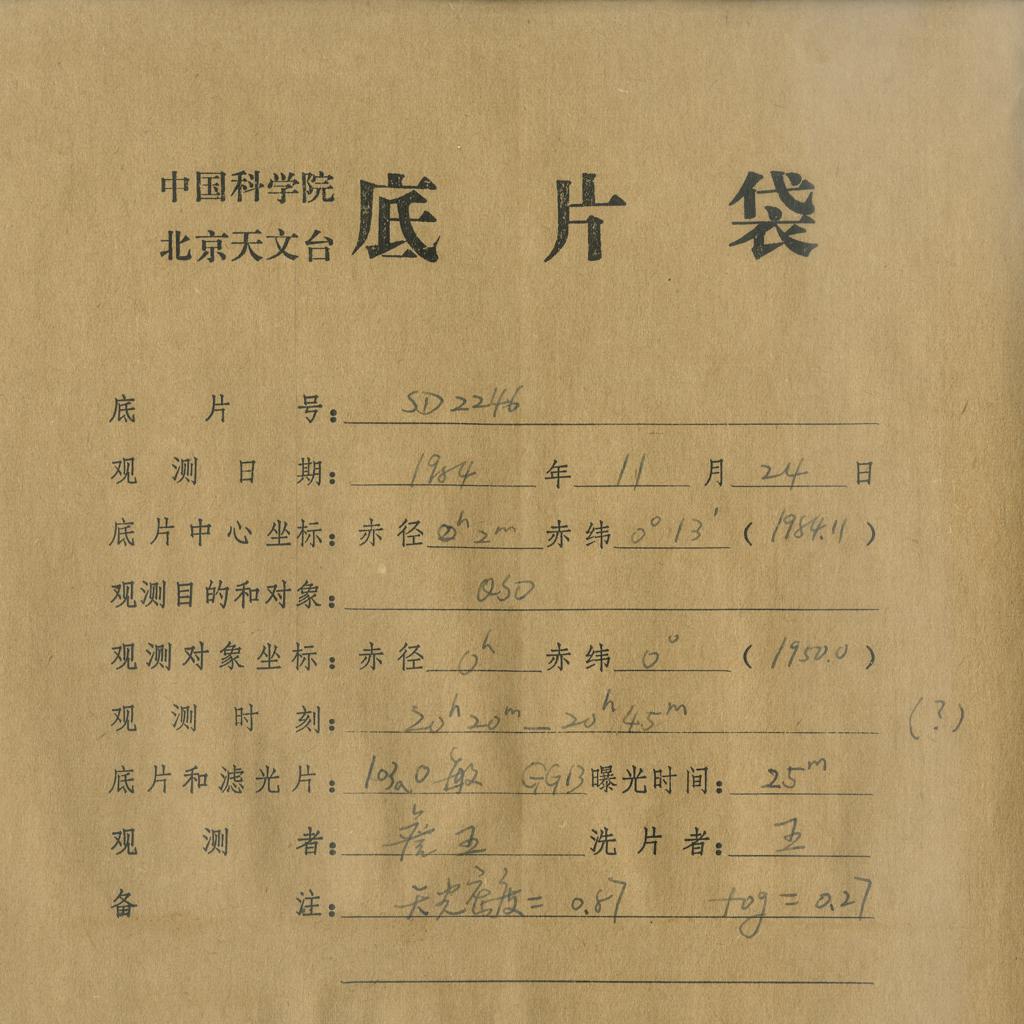 中国科学院
北京天文台
底片袋
底片号： SD2246
观测日期： 1984 年 11 月 24 日
底片中心坐标：赤径 0ʰ2ᵐ 赤纬 0°13′ ( 1984.11 )
观测目的和对象： QSO
观测对象坐标：赤径 0ʰ 赤纬 0° ( 1950.0 )
观测时刻： 20ʰ20ᵐ—20ʰ45ᵐ (?)
底片和滤光片： 103aO 敏 GG13 曝光时间： 25ᵐ
观测者： 詹 王 洗片者： 王
备注： 天光密度= 0.87 fog = 0.27